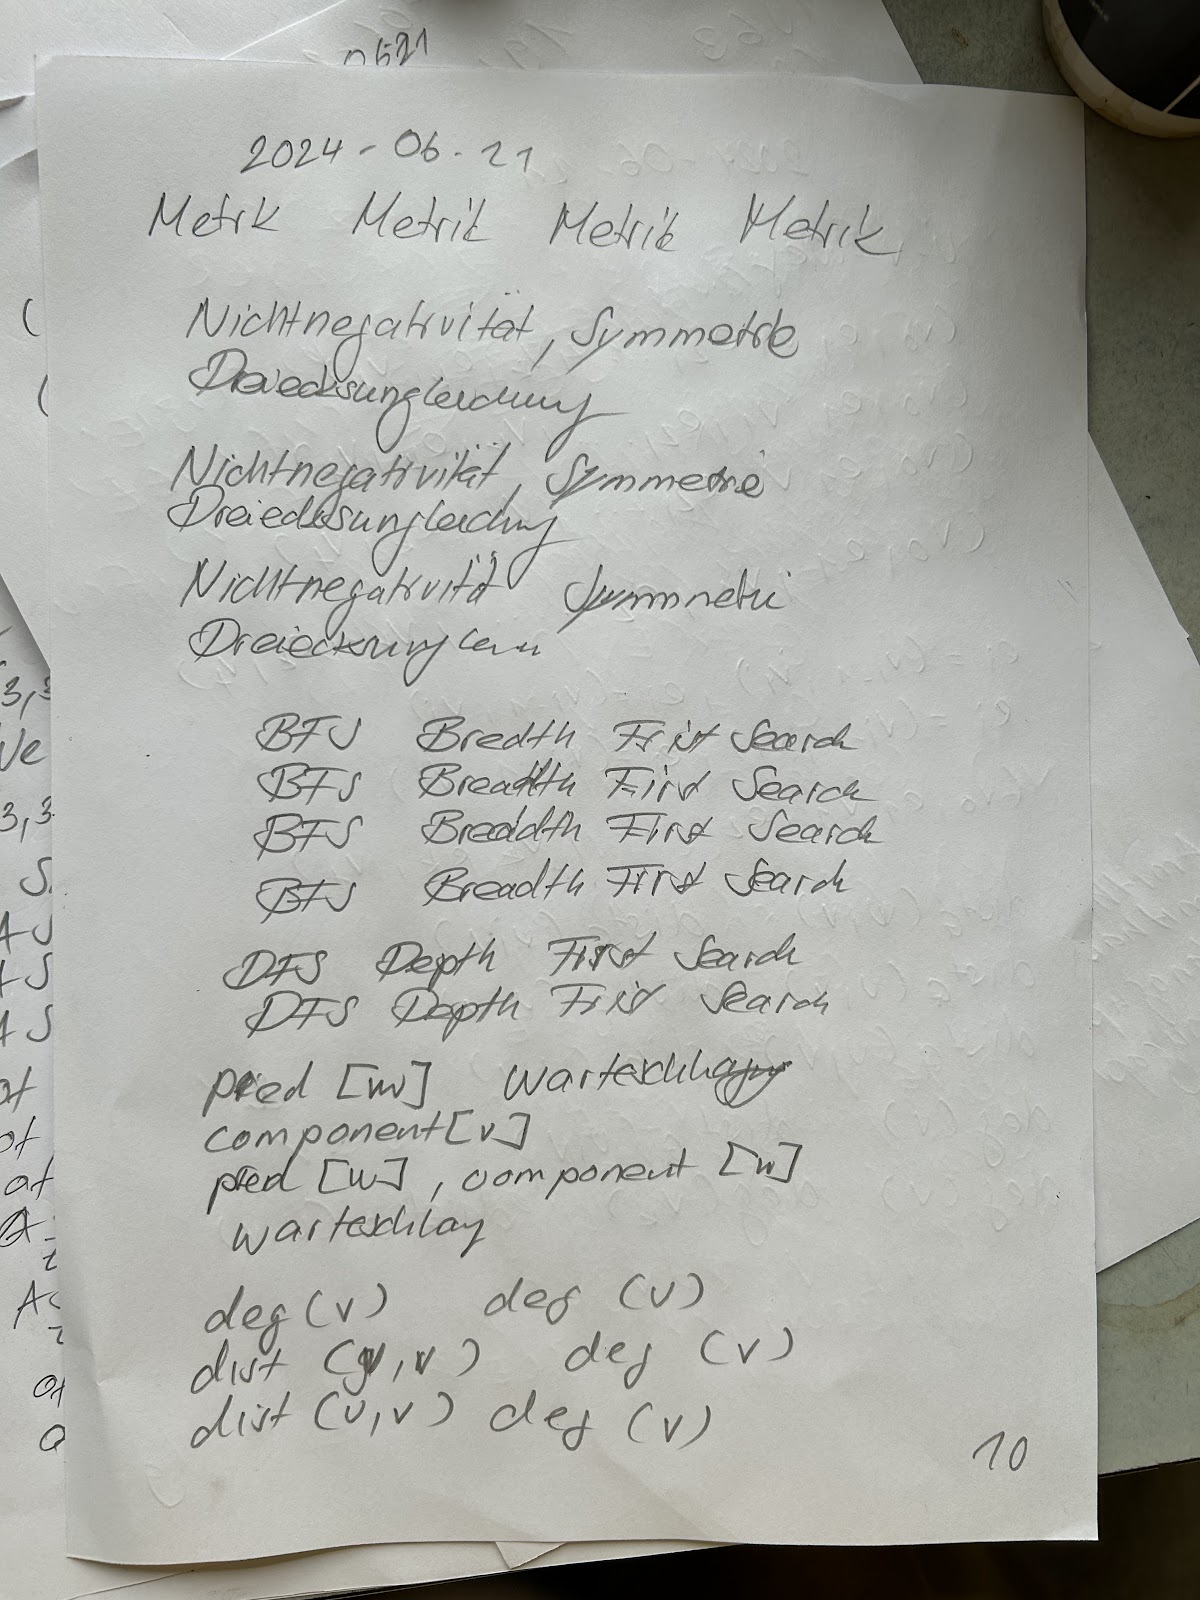 0621
2024-06-21
Metrk Metrik Metrik Metrik
Nichtnegativität, Symmetrie
Dreiecksungleichung
Nichtnegativität, Symmetrie
Dreiecksungleichung
Nichtnegativität Symmnetri
Dreiecksunglen
BFS Bredth Frist Search
BFS Breadth First Search
BFS Breadth First Search
BFS Breadth First Search
DFS Depth First Search
DFS Depth Frist Search
pred [w]
component[v]
pred [w], component [w]
Warteschlag
deg(v) deg (v)
dist (u,v) deg (v)
dist (u,v) deg (v)
10